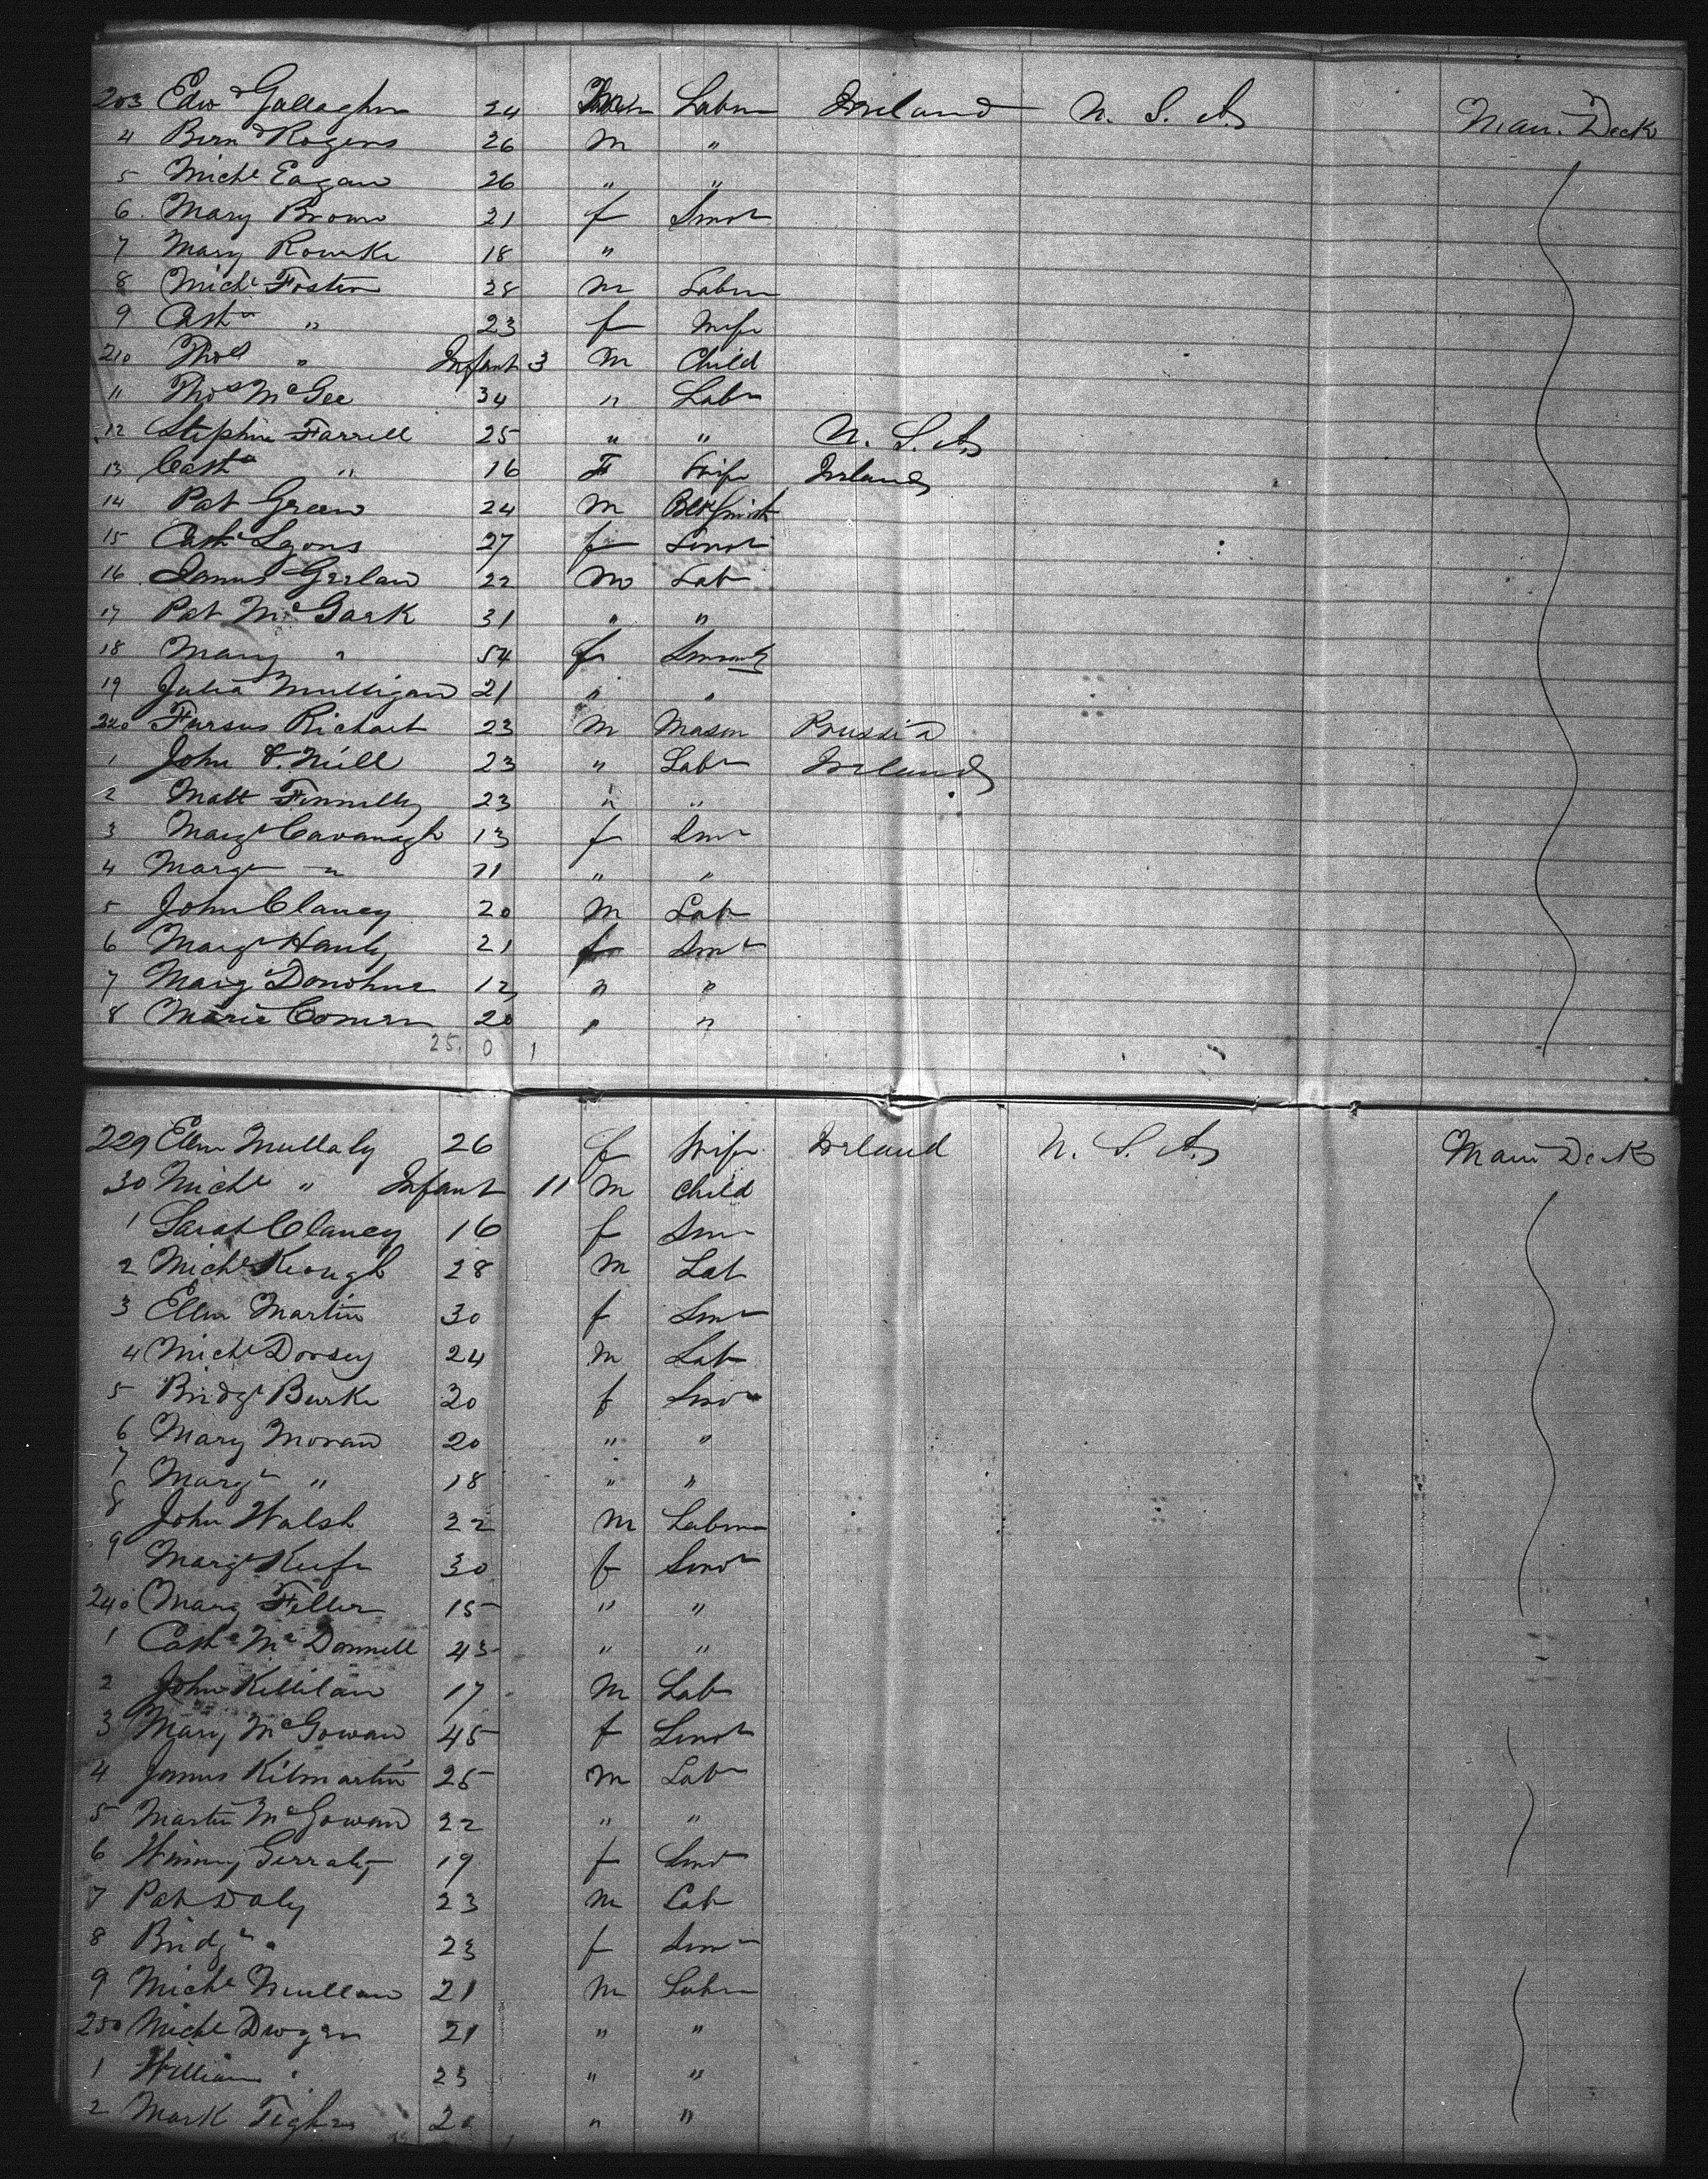 203 Edwd Gallagher 24 M Labr Ireland U. S. A. Main Deck
4 Bernd Rogers 26 M "
5 Michl Eagan 26 " "
6 Mary Brown 21 f Servt
7 Mary Rourke 18 "
8 Michl Foster 28 M Labr
9 Cathe " 23 f Wife
210 Thos " Infant 3 M Child
11 Thos McGee 34 " Labr
12 Stephen Farrell 25 " " U. S. A.
13 Cathe " 16 F Wife Ireland
14 Pat Green 24 M Blksmith
15 Cathe Lyons 27 f Servt
16 James Gerlan 22 M Lab
17 Pat McGark 31 " "
18 Mary " 54 f Servant
19 Julia Mulligan 21 " "
220 Richart 23 M Mason Prussia
1 John O'Neill 23 " Labr Ireland
2 Matt Fennelly 23 " "
3 Margt Cavanagh 13 f Servt
4 Margt " 11 " "
5 John Clancy 20 M Lab
6 Margt Hanly 21 f Servt
7 Marg Donohue 12 " "
8 Maria Comer 20 " "
25. 0 1
229 Ellen Mullaly 26 f Wife Ireland U. S. A. Main Deck
30 Michl " Infant 11 M Child
1 Sarah Clancy 16 f Servt
2 Michl Keough 28 M Lab
3 Ellen Martin 30 f Servt
4 Michl Dorsey 24 M Lab
5 Bridgt Burke 20 f Servt
6 Mary Moran 20 " "
7 Margt " 18 " "
8 John Walsh 22 M Labr
9 Margt Keefe 30 f Servt
240 Mary Feller 15 " "
1 Cathe McDonnell 43 " "
2 John Killilan 17 M Lab
3 Mary McGowan 45 f Servt
4 James Kilmartin 25 M Lab
5 Martin McGowan 22 " "
6 Winny Gerraty 19 f Servt
7 Pat Daly 23 M Lab
8 Bridgt " 23 f Servt
9 Michl Mullan 21 M Labr
250 Michl Dwyer 21 " "
1 William " 23 " "
2 Mark Tighe 20 " "